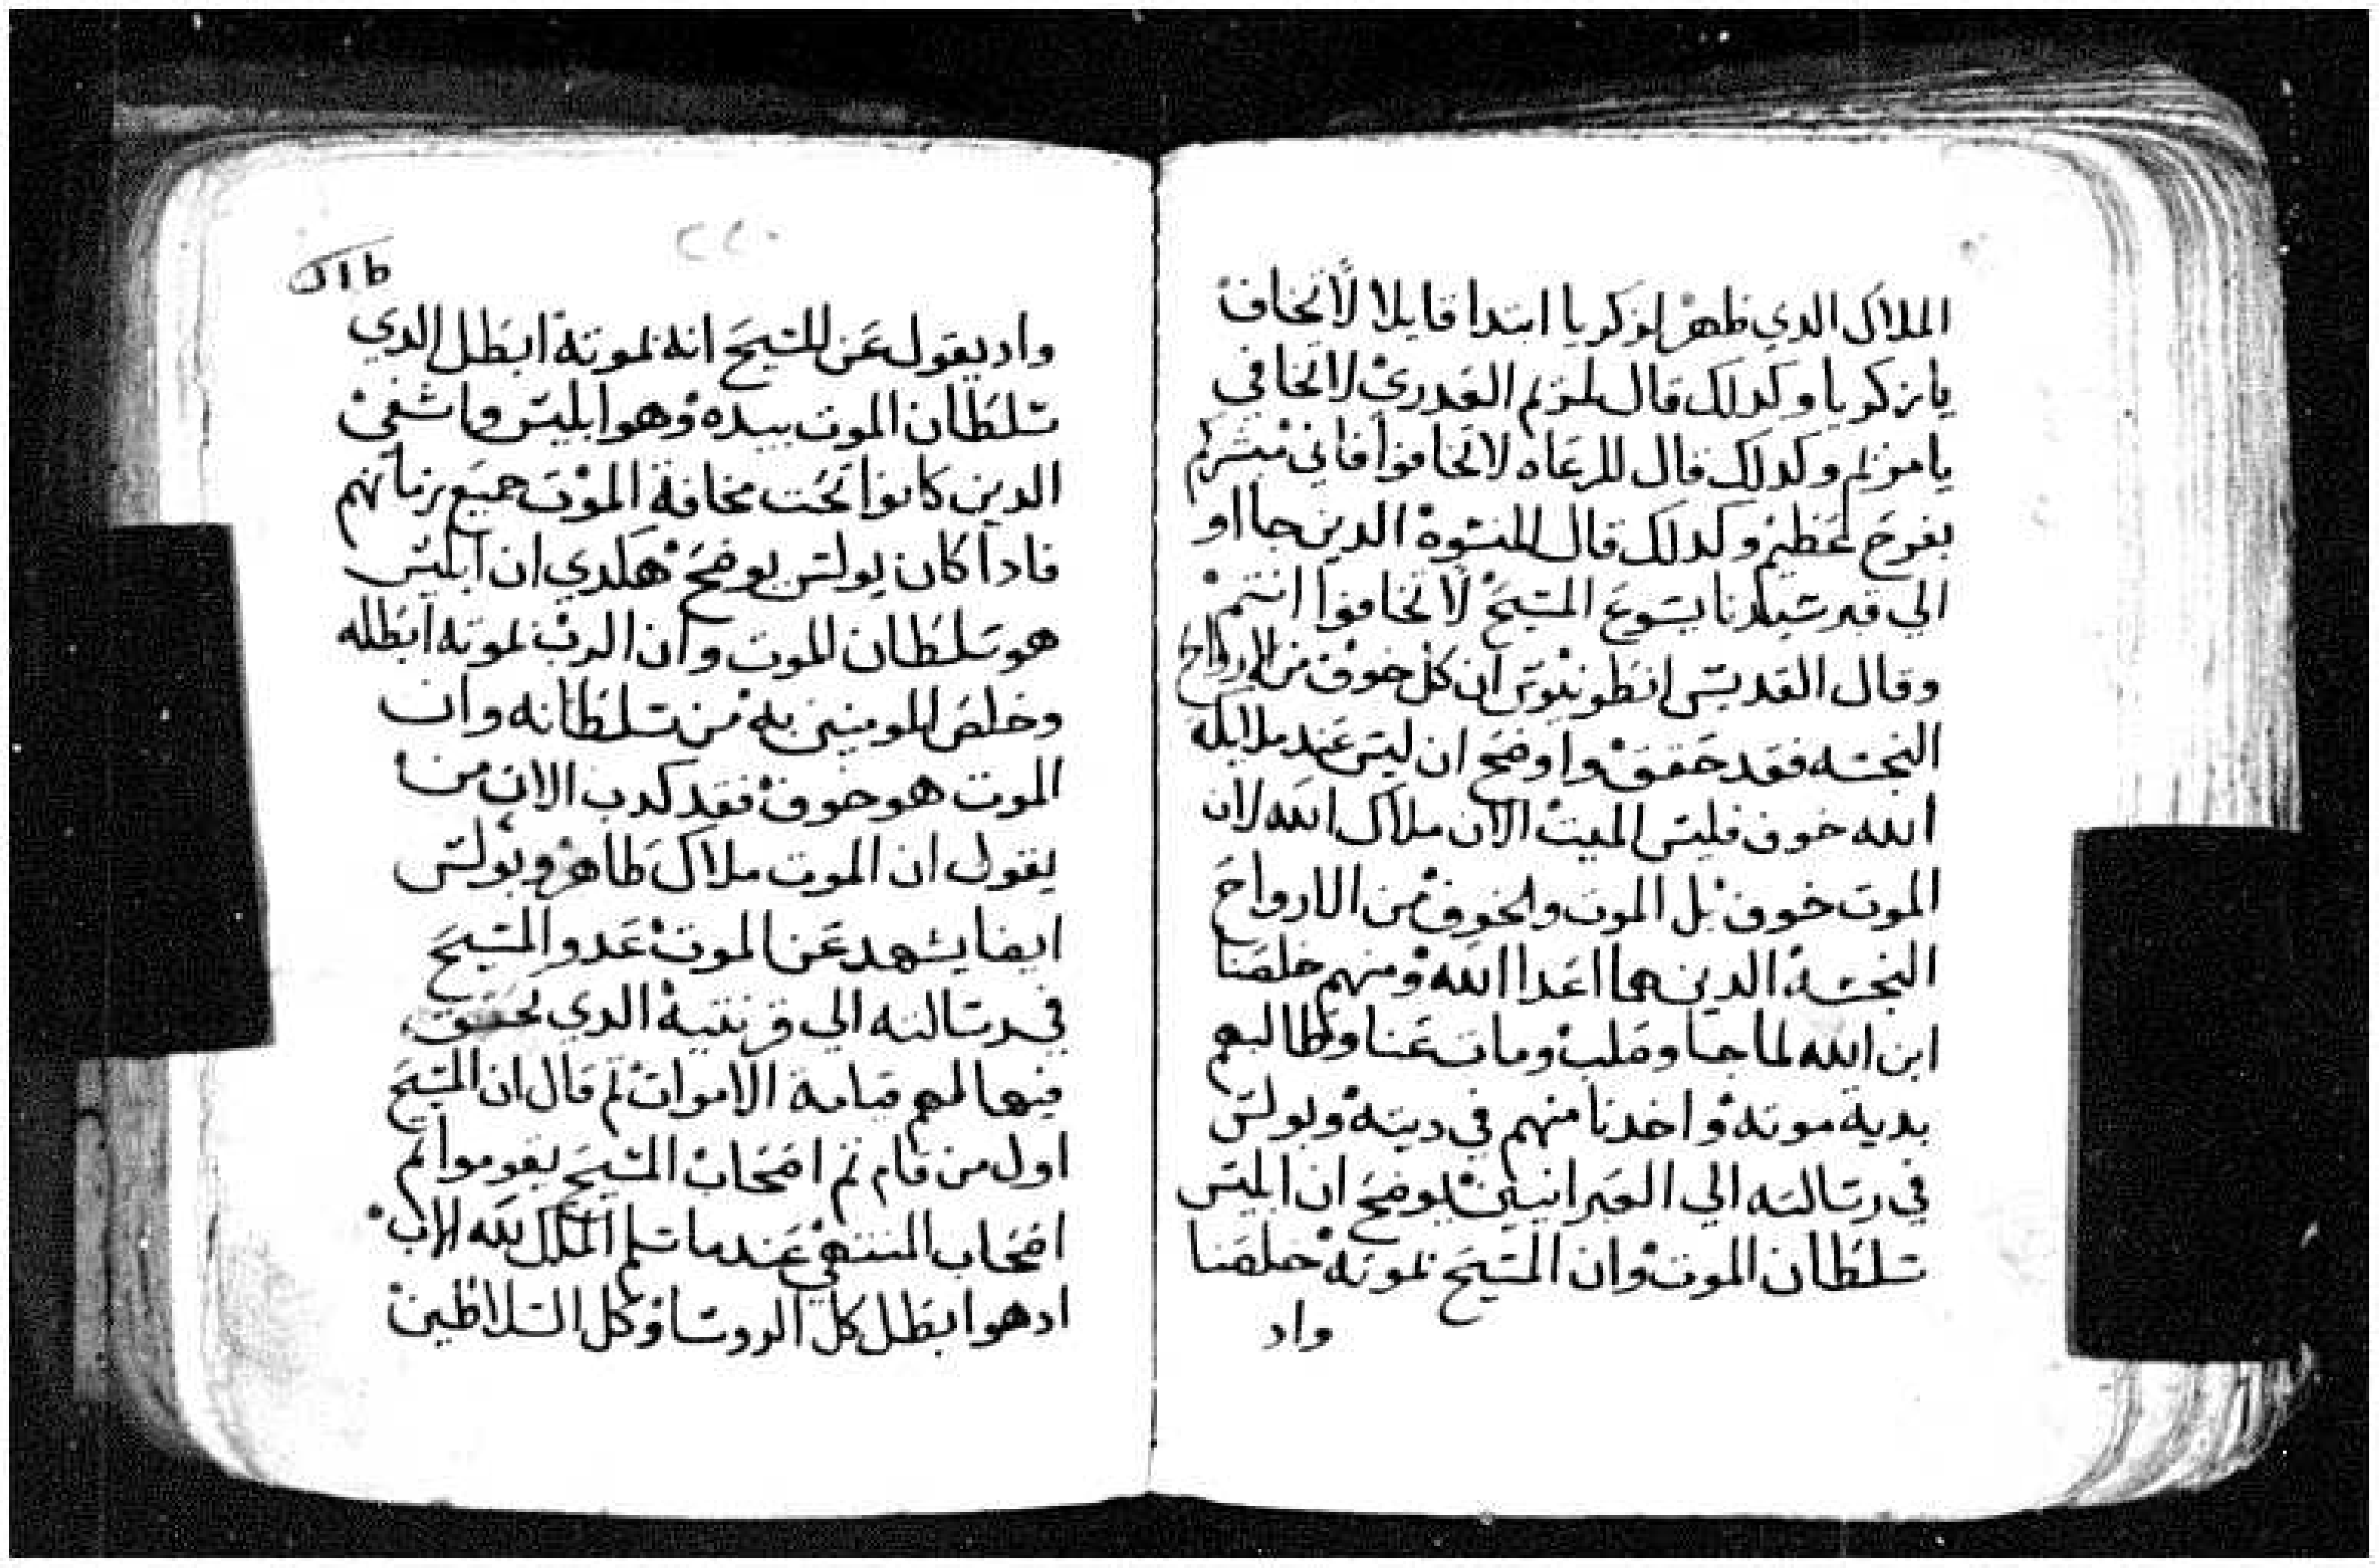 الملاك الدي ظهر لزكريا ابتدا قايلا لا تخاف
يا زكريا وكدلك قال لمريم العدري لا تخافي
يا مريم وكدلك قال للرعاه لا تخافوا فاني مبشركم
بفرح عظيم وكدلك قال للنسوة الدين جااو
الي قبر سيدنا يسوع المسيح لا تخافوا انتم
وقال القديس انطونيوس ان كل خوف من الارواح
النجسه فقد حقق واوضح ان ليس عند ملايكة
الله خوف فليس الميت الان ملاك الله لان
الموت خوف بل الموت والخوف من الارواح
النجسة الدين هما اعدا الله ومنهم خلصنا
ابن الله لما جا وصلب ومات عنا وطالبهم
بدية موته واخدنا منهم في ديته وبولس
في رسالته الي العبرانيين يوضح ان ابليس
سلطان الموت وان المسيح بموته خلصنا
واد
٢٢٠
واد يقول عن المسيح انه بموته ابطل الدي
سلطان الموت بيده وهو ابليس واشفي
الدين كانوا تحت مخافة الموت جميع زمانهم
فادا كان بولس يوضح هكدي ان ابليس
هو سلطان الموت وان الرب بموته ابطله
وخلص المومنين به من سلطانه وان
الموت هو خوف فقد كدب الان من
يقول ان الموت ملاك طاهر وبولس
ايضا يشهد عن الموت عدو المسيح
في رسالته الي قرنتية الدي يحقق
فيها لهم قيامة الاموات ثم قال ان المسيح
اول من قام ثم اصحاب المسيح يقوموا ثم
اصحاب المنتهي عندما سلم الملك لله الاب
اد هو ابطل كل الروسا وكل السلاطين